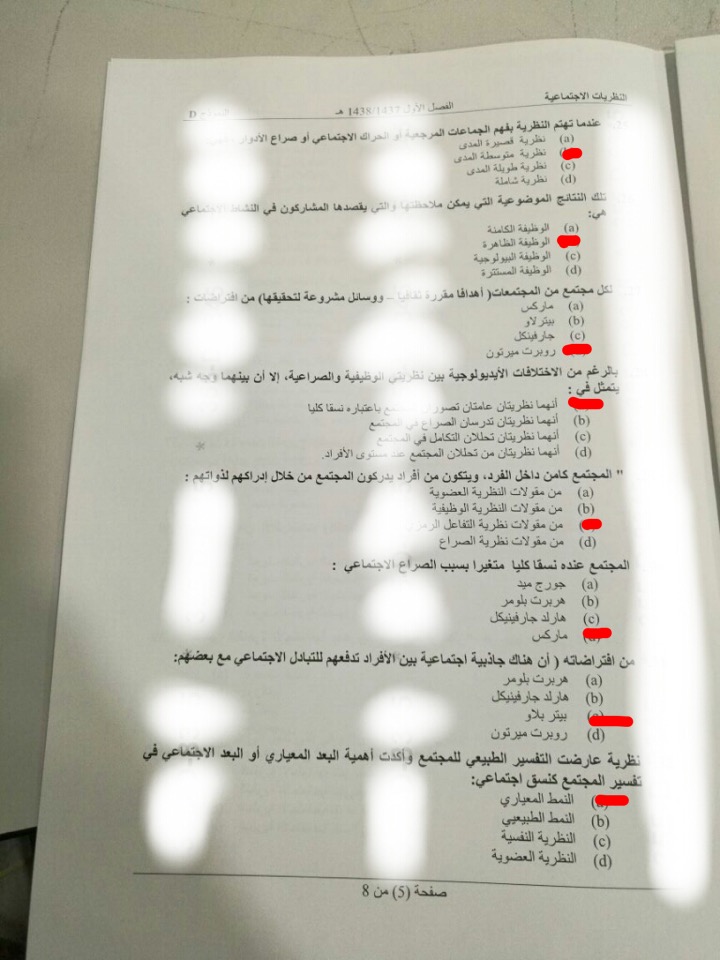 النظريات الاجتماعية
الفصل الأول 1438/1437 هـ
D
عندما تهتم النظرية بفهم الجماعات المرجعية أو الحراك الاجتماعي أو صراع الأدوار
(a) نظرية قصيرة المدى
نظرية متوسطة المدى
(c) نظرية طويلة المدى
(d) نظرية شاملة
تلك النتائج الموضوعية التي يمكن ملاحظتها والتي يقصدها المشاركون في النشاط الاجتماعي
هي:
(a) الوظيفة الكامنة
الوظيفة الظاهرة
(c) الوظيفة البيولوجية
(d) الوظيفة المستترة
لكل مجتمع من المجتمعات( أهدافا مقررة ثقافيا – ووسائل مشروعة لتحقيقها) من افتراضات :
(a) ماركس
(b) بيترلاو
(c) جارفينكل
روبرت ميرتون
بالرغم من الاختلافات الأيديولوجية بين نظريتي الوظيفية والصراعية، إلا أن بينهما وجه شبه،
يتمثل في :
أنهما نظريتان عامتان تصور باعتباره نسقا كليا
(b) أنهما نظريتان تدرسان الصراع في المجتمع
(c) أنهما نظريتان تحللان التكامل في المجتمع
(d) أنهما نظريتان من تحللان المجتمع مستوى الأفراد.
" المجتمع كامن داخل الفرد، ويتكون من أفراد يدركون المجتمع من خلال إدراكهم لذواتهم :
(a) من مقولات النظرية العضوية
(b) من مقولات النظرية الوظيفية
من مقولات نظرية التفاعل الرمزي
(d) من مقولات نظرية الصراع
المجتمع عنده نسقا كليا متغيرا بسبب الصراع الاجتماعي :
(a) جورج ميد
(b) هربرت بلومر
(c) هارلد جارفينيكل
ماركس
من افتراضاته ( أن هناك جاذبية اجتماعية بين الأفراد تدفعهم للتبادل الاجتماعي مع بعضهم:
(a) هربرت بلومر
(b) هارلد جارفينيكل
بيتر بلاو
(d) روبرت ميرتون
نظرية عارضت التفسير الطبيعي للمجتمع وأكدت أهمية البعد المعياري أو البعد الاجتماعي في
تفسير المجتمع كنسق اجتماعي:
النمط المعياري
(b) النمط الطبيعيي
(c) النظرية النفسية
(d) النظرية العضوية
صفحة (5) من 8